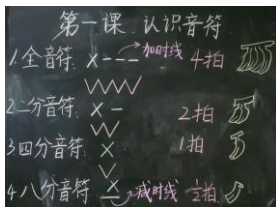 第一课 认识音符
1.全音符: X--- 加时线 4拍
2.二分音符: X- 2拍
3.四分音符: X 1拍
4.八分音符: X 减时线 1/2拍